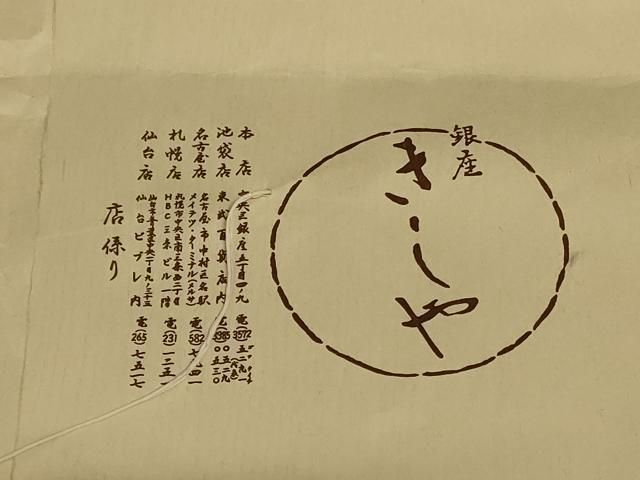 銀座
きしや
本店 中央区銀座五丁目四ノ九 電(3572)五二九一
池袋店 東武百貨店内
名古屋店 名古屋市中村区名駅
メイテツ・ターミナル(メルサ) 電(582)
札幌店 札幌市中央区南三条西二丁目
HBC三条ビル一階 電(231)一二五一
仙台店 仙台ビブレ内 電(265)七五一七
店係り